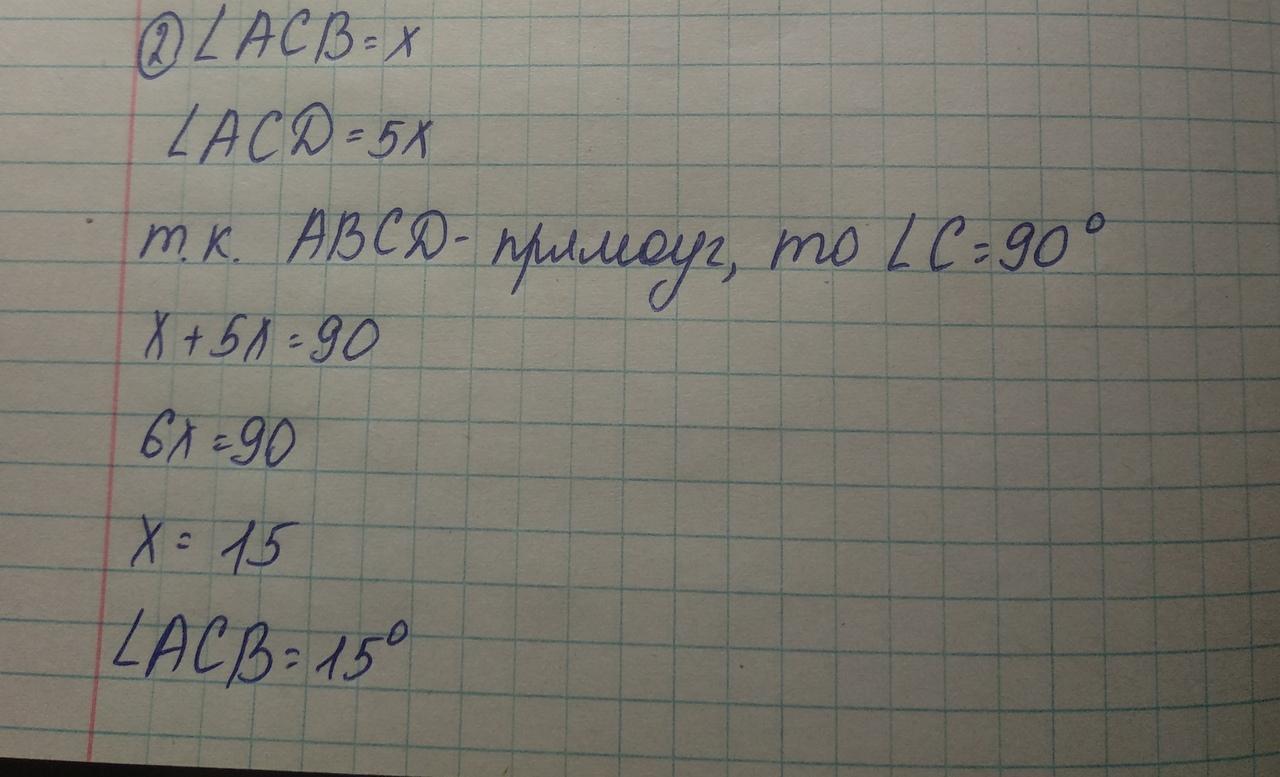 ② ∠ACB=x
∠ACD=5x
т.к. ABCD- прямоуг, то ∠C=90°
x+5x=90
6x=90
x= 15
∠ACB=15°